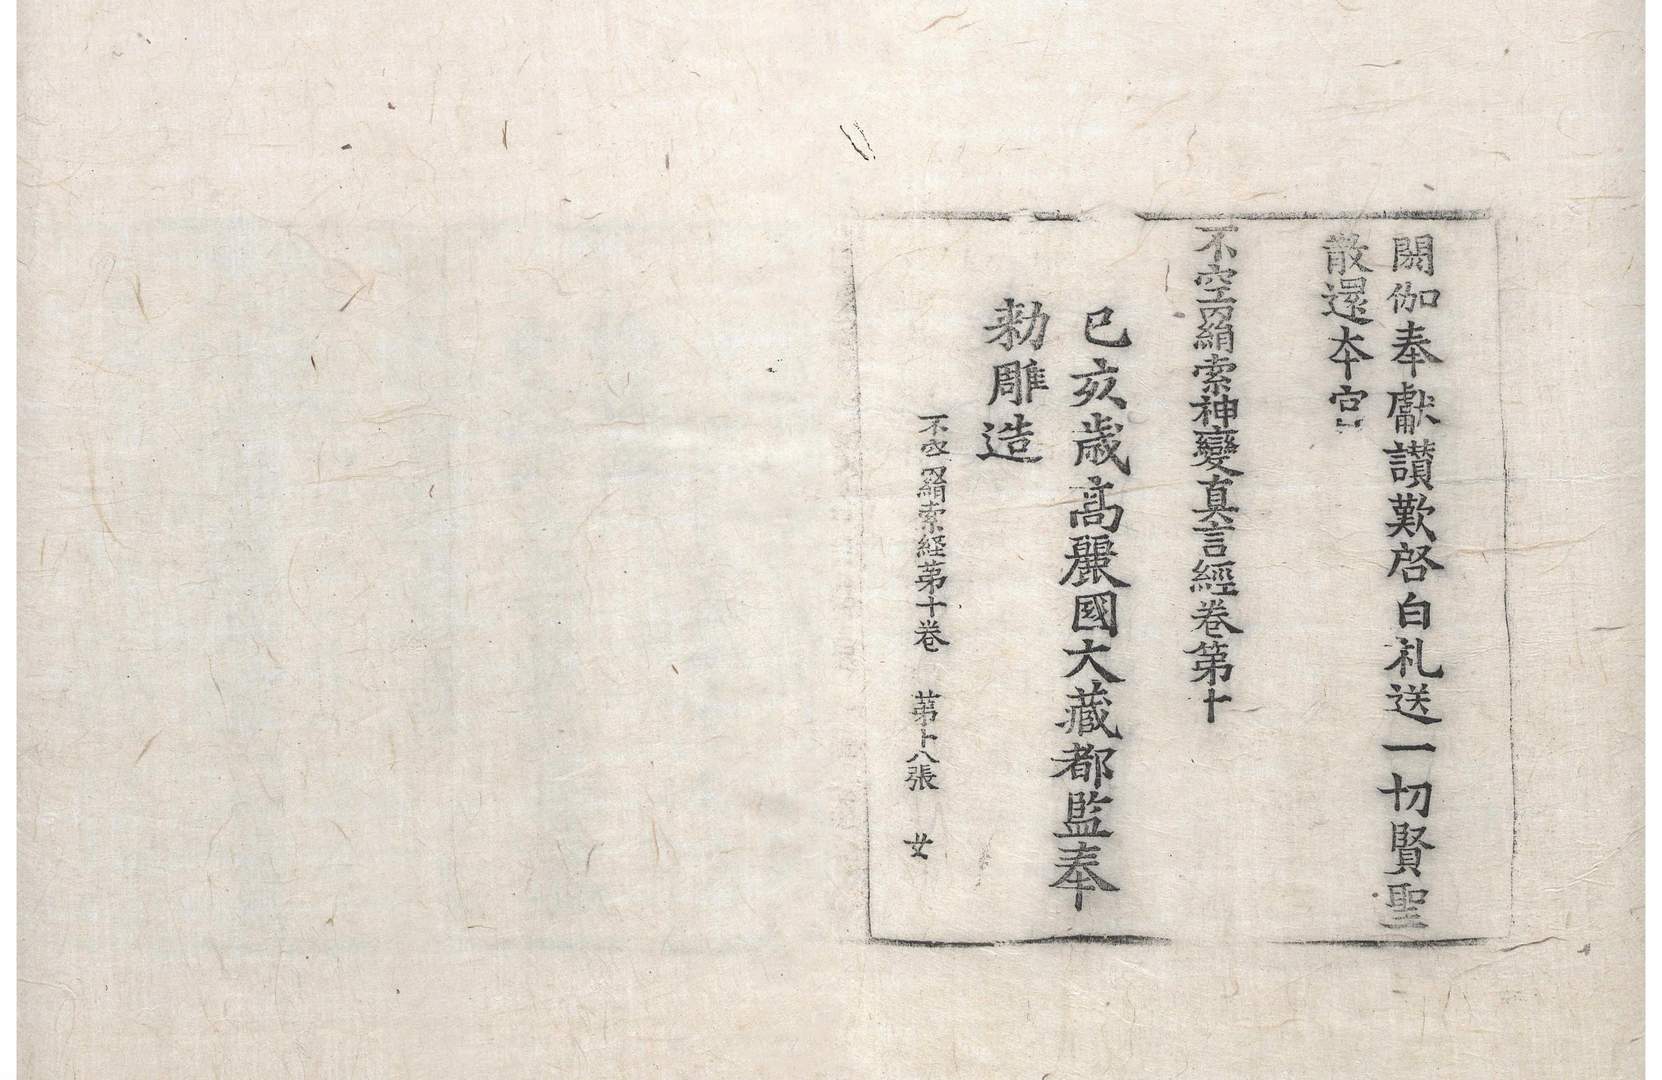 閼伽奉獻讃歎啓白礼送一切賢聖
散還本宮
不空羂索神變真言經卷第十
己亥歳高麗國大藏都監奉
勅雕造
不空羂索経第十卷 第十八張 女